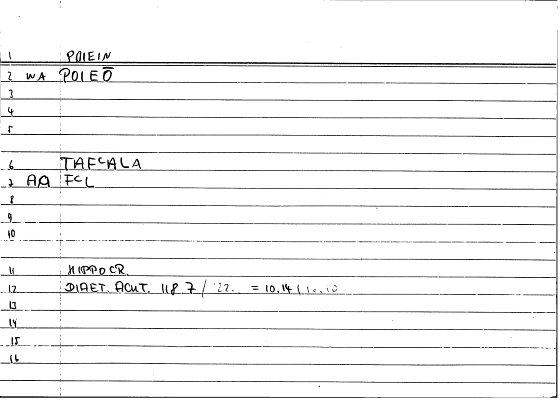 1 POIEIN
2 WA POIEŌ
3
4
5
6 TAFᶜALA
7 AA FᶜL
8
9
10
11 HIPPOCR.
12 DIAET. ACUT. 118 7 / 22. = 10.14 /
13
14
15
16